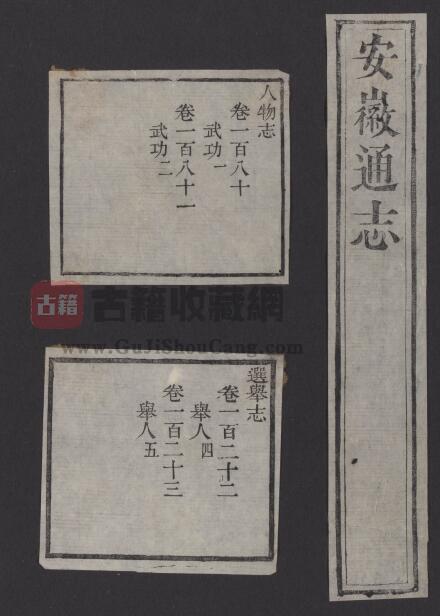 安徽通志
人物志
卷一百八十
武功一
卷一百八十一
武功二
古籍
古籍收藏網
www.GuJiShouCang.com
選舉志
卷一百二十二
舉人四
卷一百二十三
舉人五